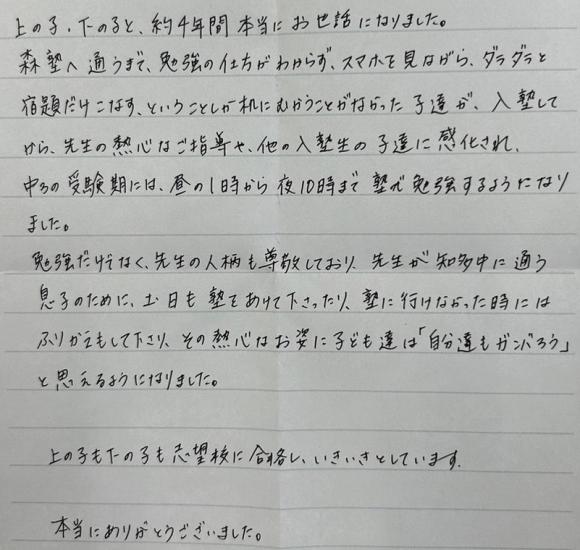 上の子、下の子と、約4年間本当にお世話になりました。
森塾へ通うまで、勉強の仕方がわからず、スマホを見ながら、ダラダラと
宿題だけこなす、ということしか机にむかうことがなかった子達が、入塾して
から、先生の熱心なご指導や、他の入塾生の子達に感化され、
中3の受験期には、昼の1時から夜10時まで塾で勉強するようになり
ました。
勉強だけでなく、先生の人柄も尊敬しており、先生が知多中に通う
息子のために、土日も塾をあけて下さったり、塾に行けなかった時には
ふりかえもして下さり、その熱心なお姿に子ども達は「自分達もガンバろう」
と思えるようになりました。
上の子も下の子も志望校に合格し、いきいきとしています。
本当にありがとうございました。